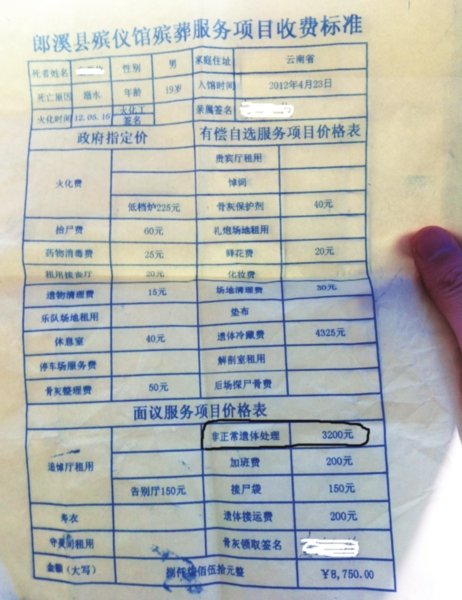 郎溪县殡仪馆殡葬服务项目收费标准
死者姓名 性别 男 家庭住址 云南省
死亡原因 溺水 年龄 19岁 入馆时间 2012年4月23日
火化时间 12.05.16 火化工签名 亲属签名
政府指定价 有偿自选服务项目价格表
火化费 贵宾厅租用
悼词
低档炉225元 骨灰保护剂 40元
抬尸费 60元 礼炮场地租用
药物消毒费 25元 鲜花费 20元
租用接食厅 20元 化妆费
遗物清理费 15元 场地清理费 30元
乐队场地租用 垫布
休息室 40元 遗体冷藏费 4325元
停车场服务费 解剖室租用
骨灰整理费 50元 后场探尸骨费
面议服务项目价格表
追悼厅租用 非正常遗体处理 3200元
加班费 200元
告别厅150元 接尸袋 150元
寿衣 遗体接运费 200元
守灵间租用 骨灰领取签名
金额（大写） 捌仟柒佰伍拾元整 ￥8,750.00